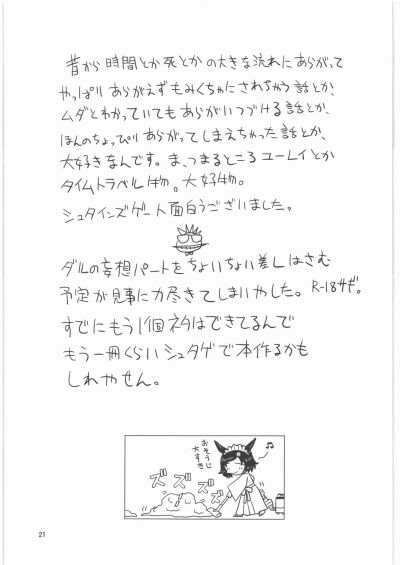 昔から時間とか死とかの大きな流れにあらがって
やっぱりあらがえずもみくちゃにされちゃう話とか、
ムダとわかっていてもあらがいつづける話とか、
ほんのちょっぴりあらがってしまえちゃった話とか、
大好きなんです。ま、つまるところユーレイとか
タイムトラベル物。大好物。
シュタインズゲート面白うございました。
ダルの妄想パートをちょいちょい差しはさむ
予定が見事に力尽きてしまいやした。R-18サギ。
すでにもう1個ネタはできてるんで
もう一冊くらいシュタゲで本作るかも
しれやせん。
おそうじ
大すき
♫
ズズズズ
21